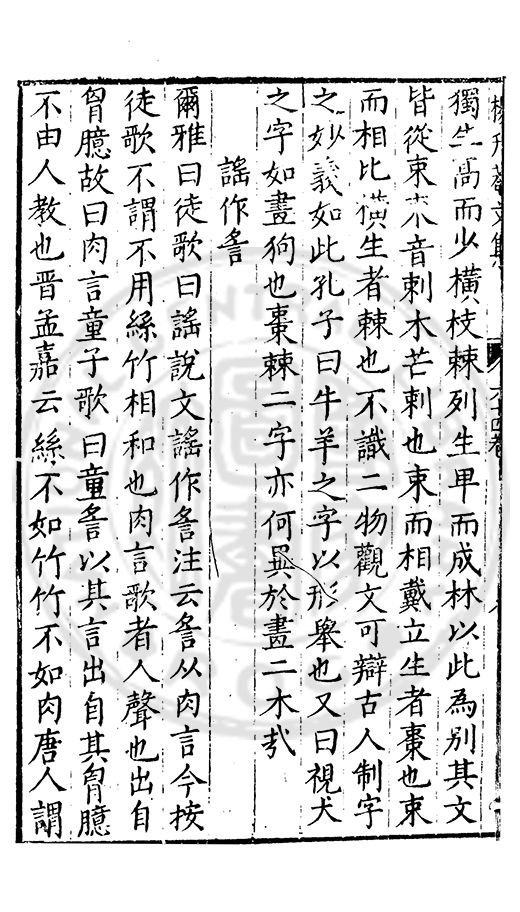 獨生高而少橫枝棘列生卑而成林以此為別其文
皆從朿朿音刺木芒刺也朿而相戴立生者棗也朿
而相比橫生者棘也不識二物觀文可辯古人制字
之妙義如此孔子曰牛羊之字以形舉也又曰視犬
之字如畫狗也棗棘二字亦何異於畫二木哉
謠作䚻
爾雅曰徒歌曰謠說文謠作䚻注云䚻从肉言今按
徒歌不謂不用絲竹相和也肉言歌者人聲也出自
胷臆故曰肉言童子歌曰童䚻以其言出自其胷臆
不由人教也晋孟嘉云絲不如竹竹不如肉唐人謂